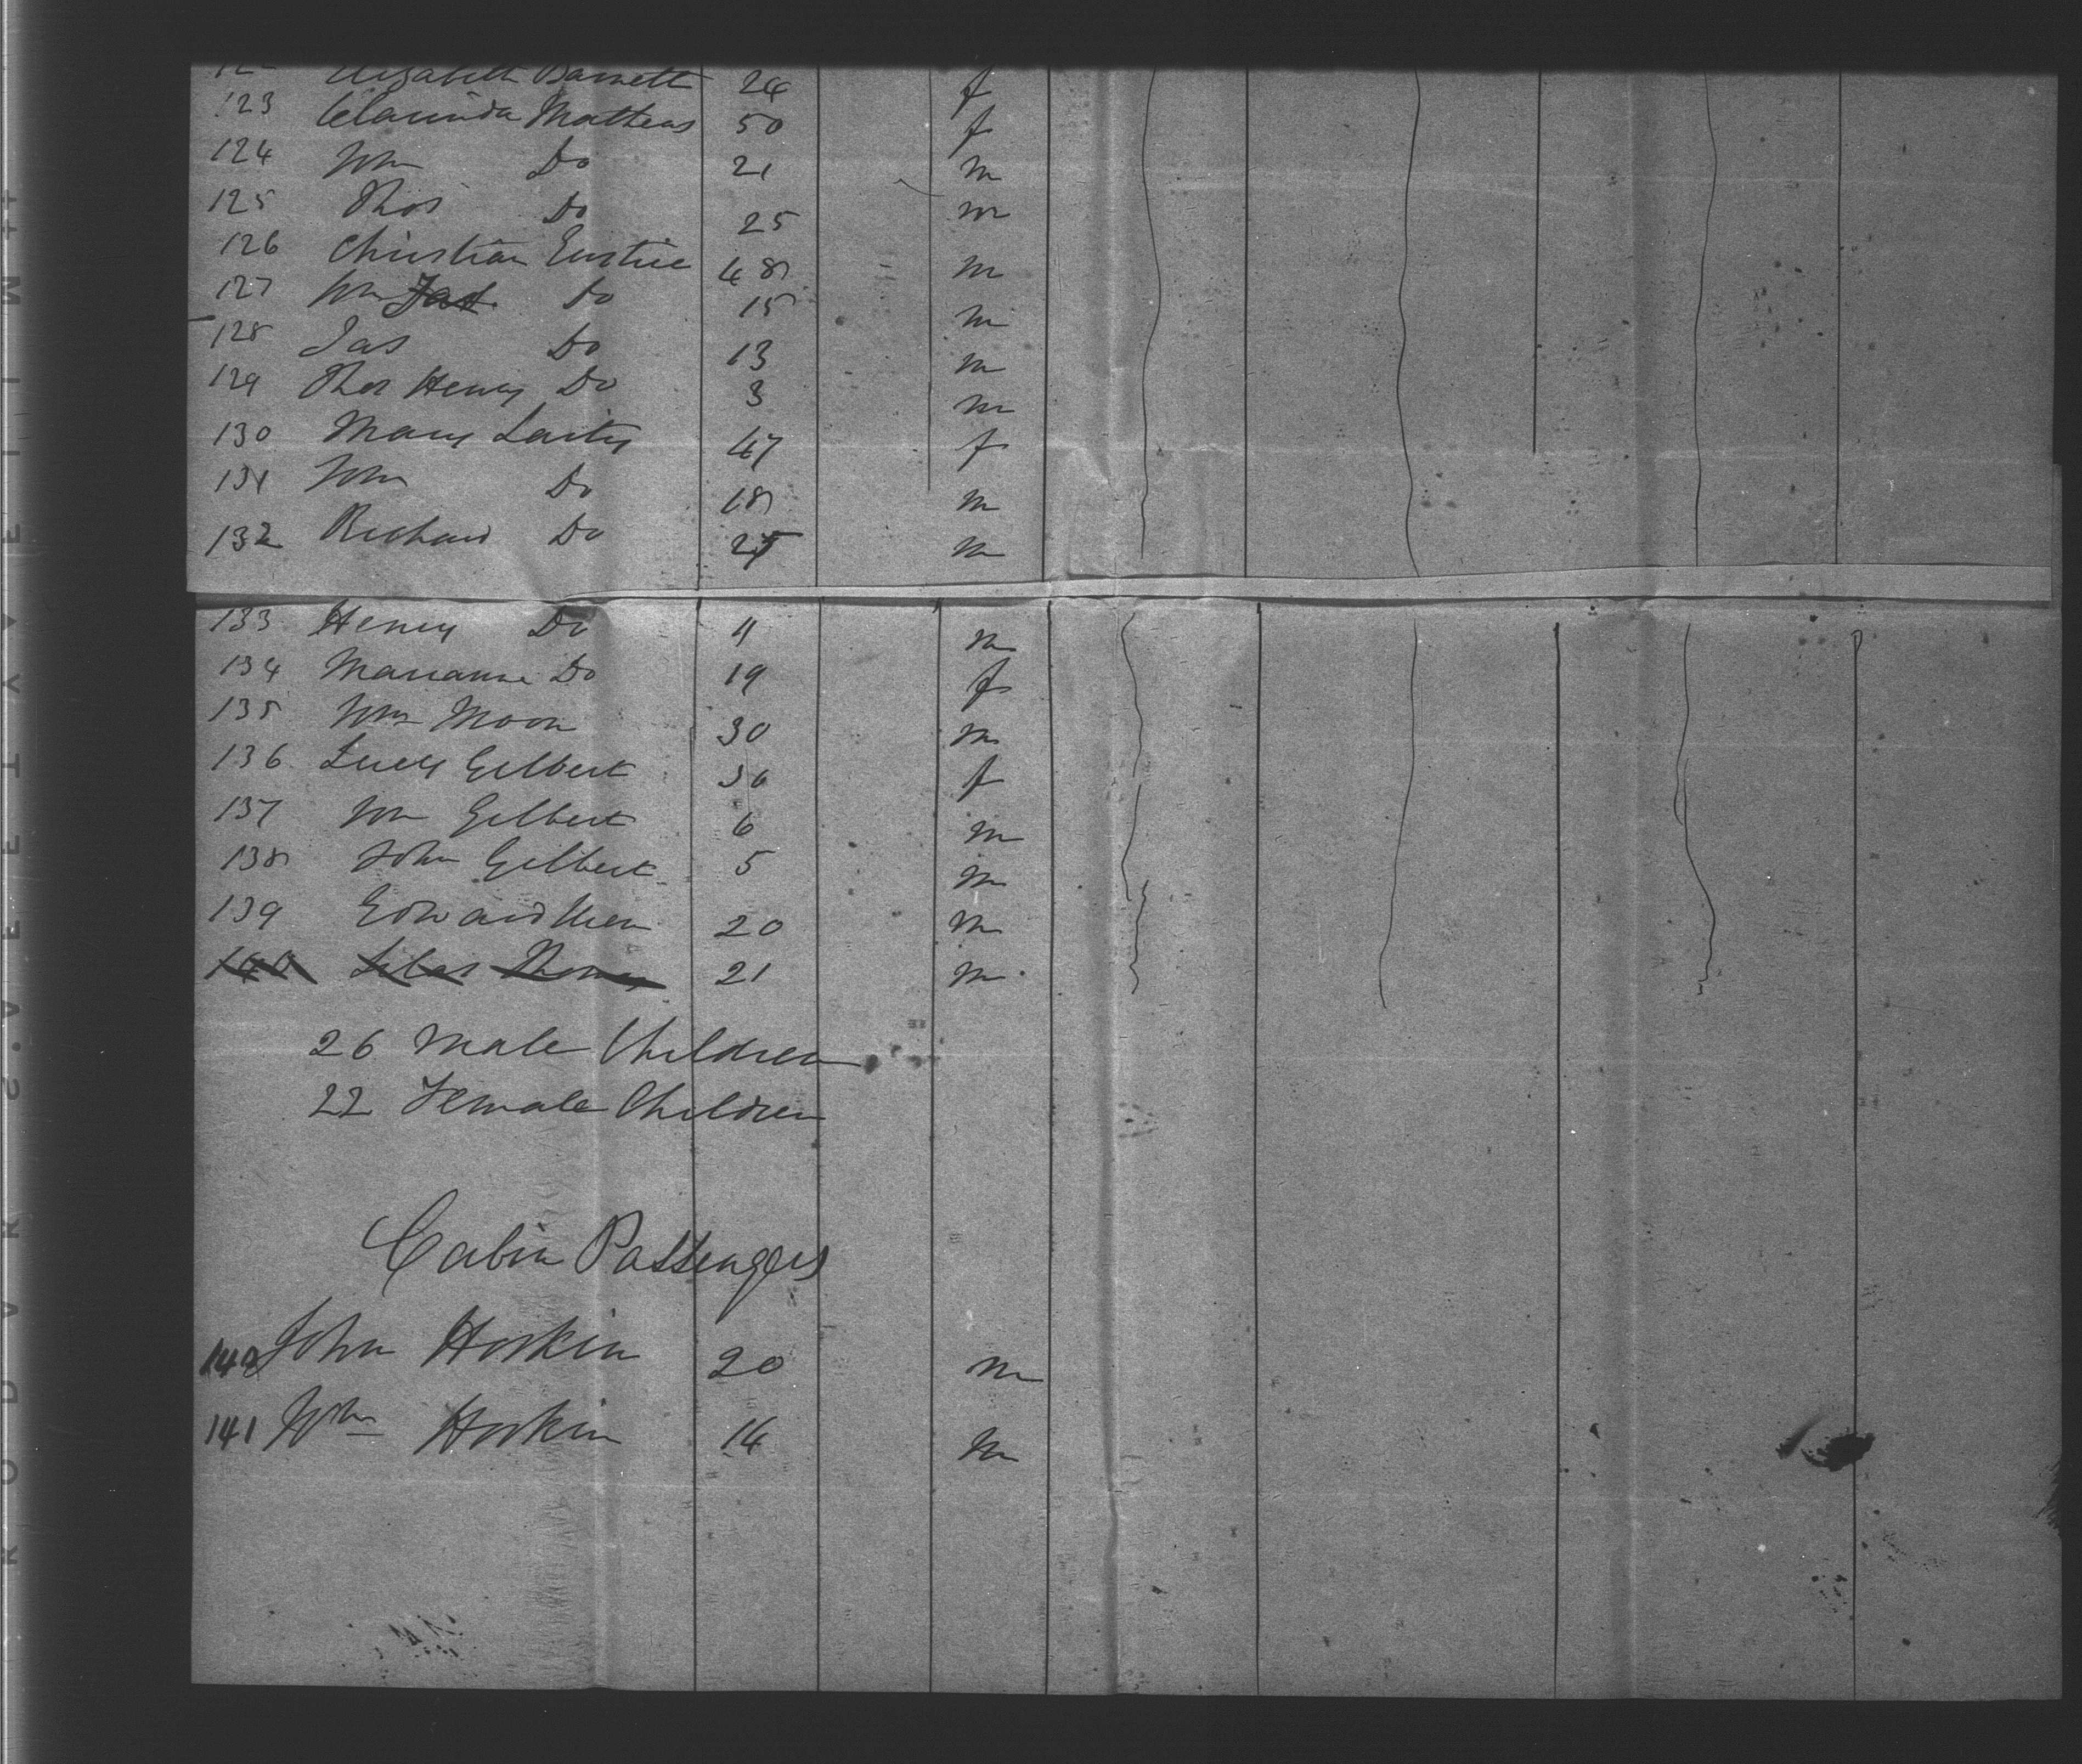 Elizabeth Barnett 24 f
123 Clarinda Mathews 50 f
124 Wm Do 21 m
125 Thos Do 25 m
126 Christian Eustice 48 m
127 Wm Jas Do 15 m
128 Jas Do 13 m
129 Thos Henry Do 3 m
130 Mary Laity 47 f
131 John Do 18 m
132 Richard Do m
133 Henry Do 11 m
134 Marianne Do 19 f
135 Wm Moon 30 m
136 Lucy Gilbert 36 f
137 Wm Gilbert 6 m
138 John Gilbert 5 m
139 Edward Uren 20 m
140 Silas Thomas 21 m
26 Male Children
22 Female Children
Cabin Passengers
140 John Hoskin 20 m
141 Wm Hoskin 14 m